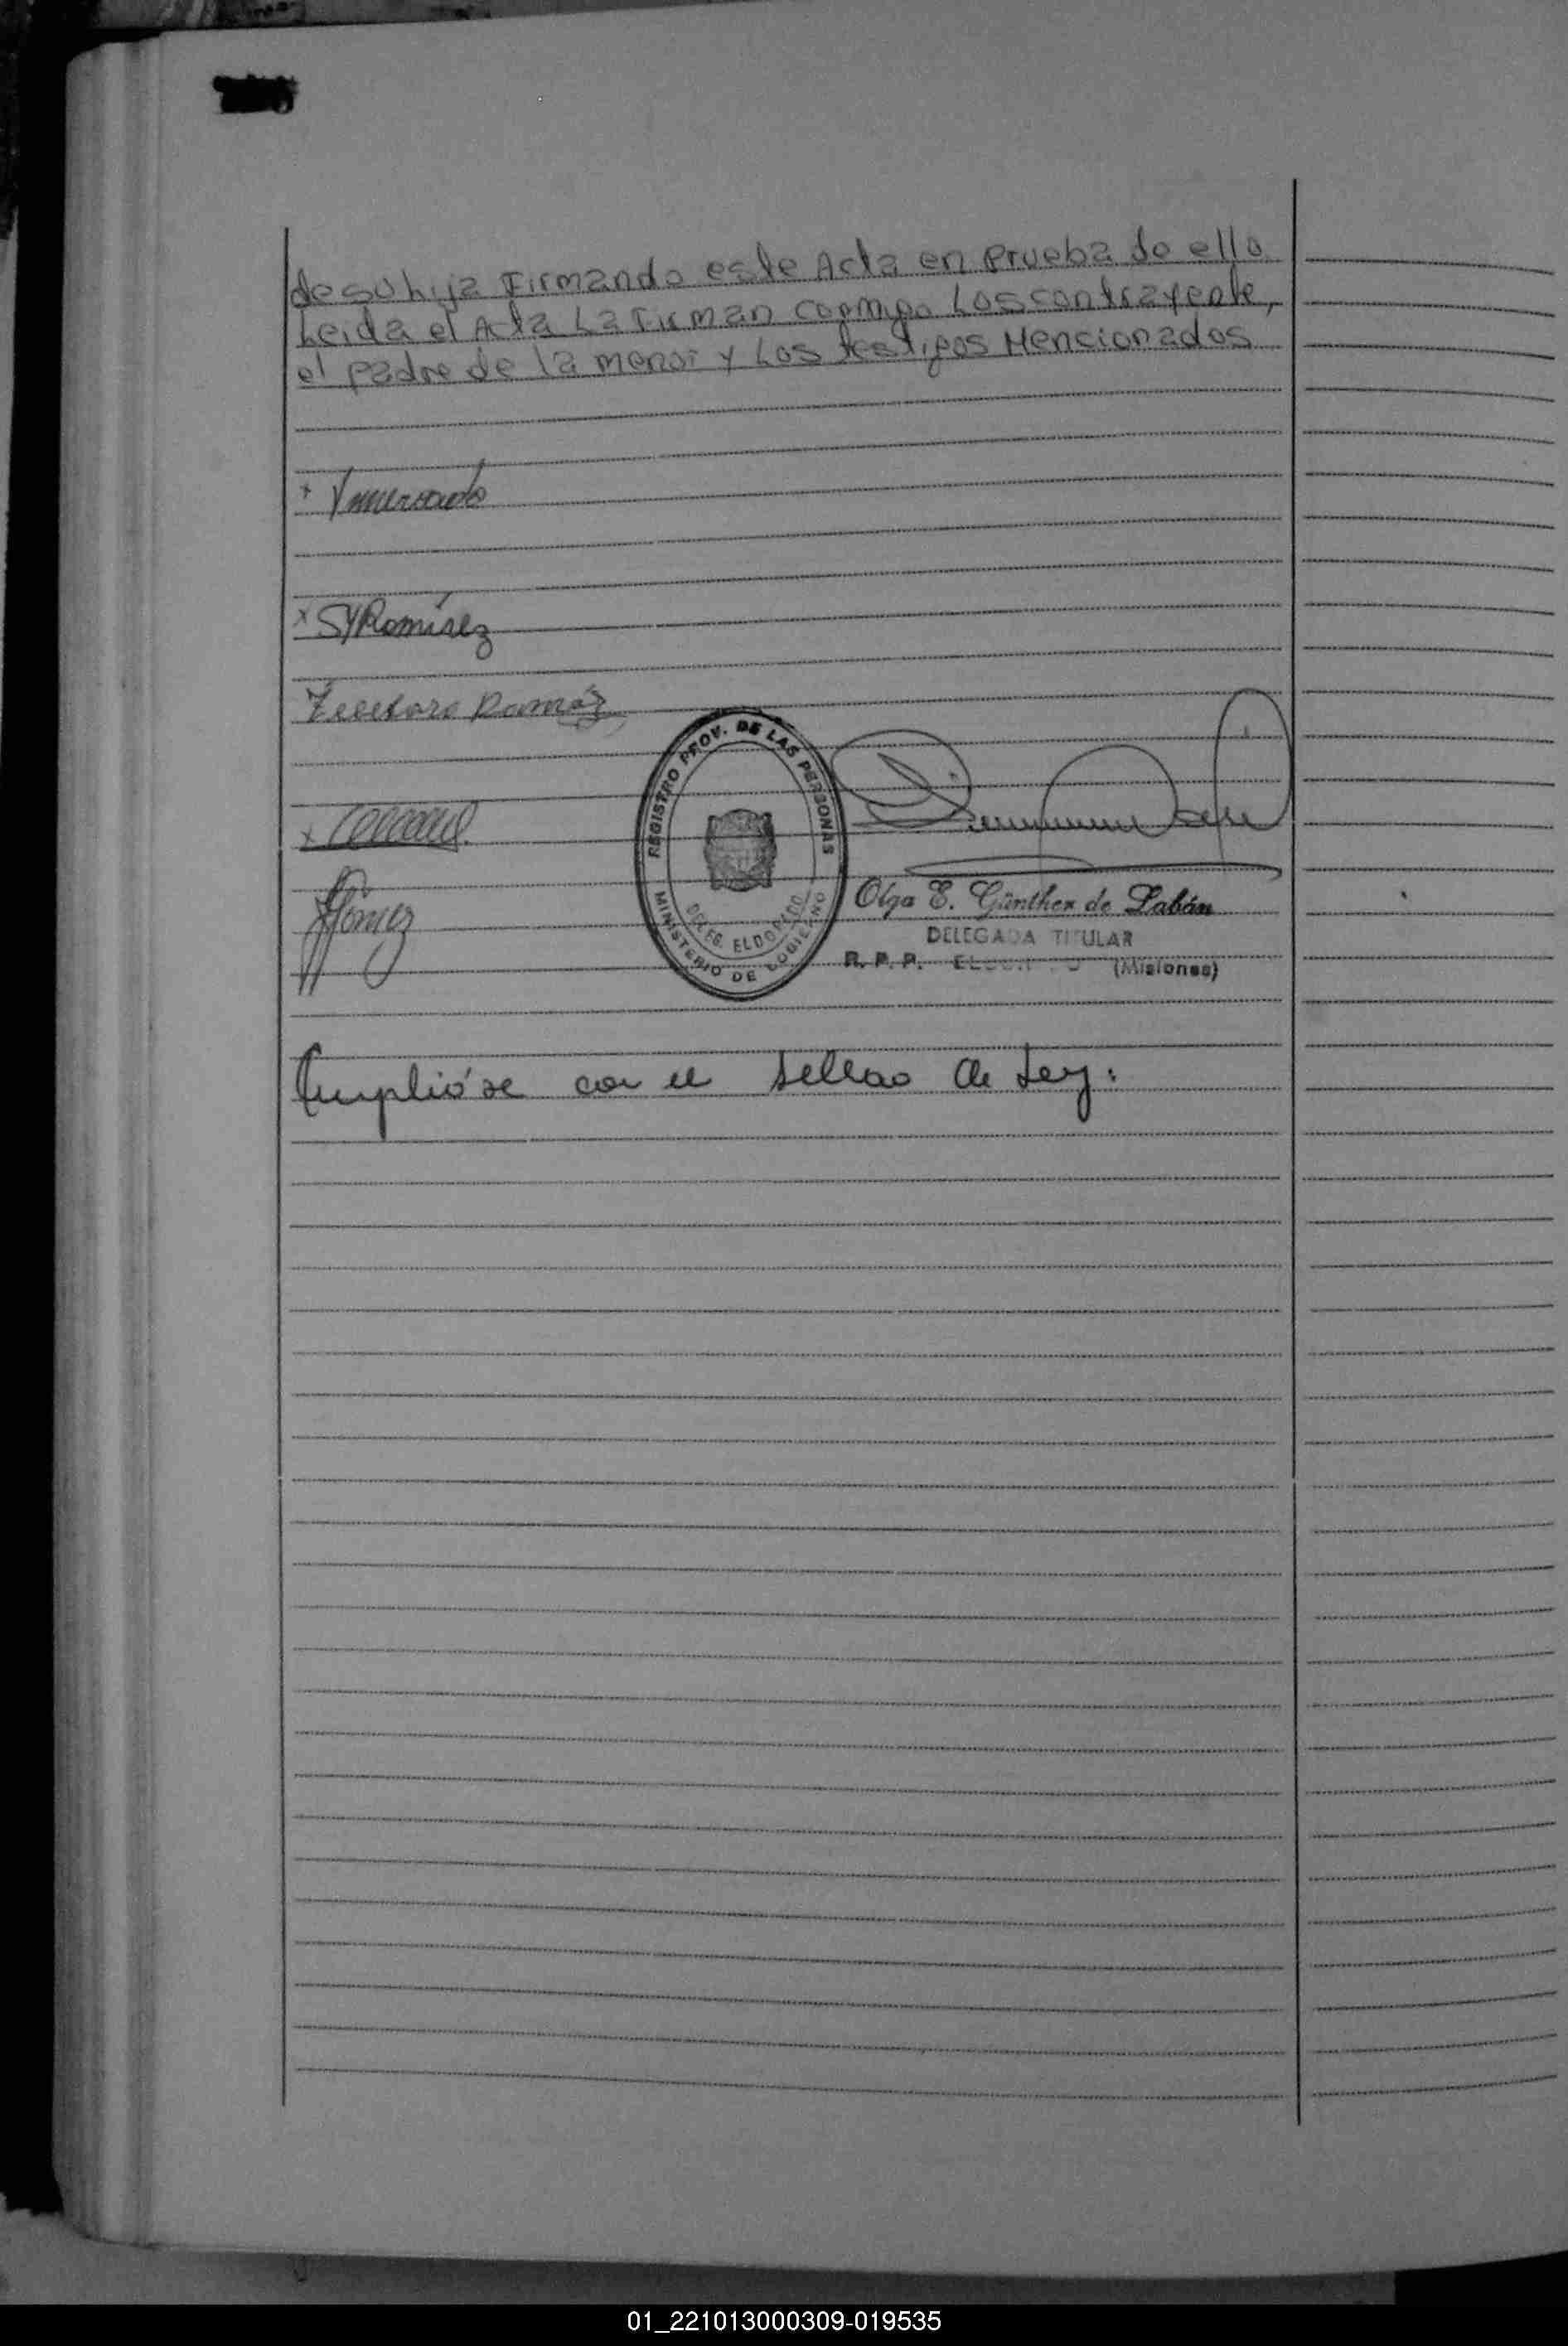 de su hija Firmando este Acta en Prueba de ello
Leida el Acta La Firman conmigo Los contrayente,
el padre de la menor y Los testigos Mencionados
x Ymercado
x SYRamírez
x
Gómez
REGISTRO PROV. DE LAS PERSONAS
MINISTERIO DE GOBIERNO
DELEG. ELDORADO
Olga E. Günther de Labán
DELEGADA TITULAR
R. P. P. ELDORADO (Misiones)
Cumplióse con el sellado de Ley:
01_221013000309-019535